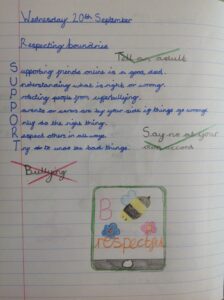 Wednesday 20th September
Respecting boundries
Tell an adult
Supporting friends online is a good deed.
Understanding what is right or wrong.
Protecting people from cyberbullying.
Parents or carers are by your side if things go wrong.
Only do the right thing.
Respect others in all ways.
Say no at your own accord
Try not to bad things.
Bullying
B
respectful